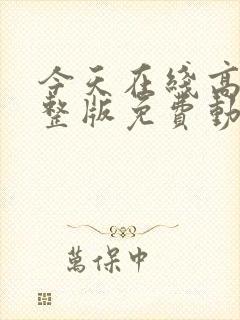 今天在綫高
整版免費動
萬保中